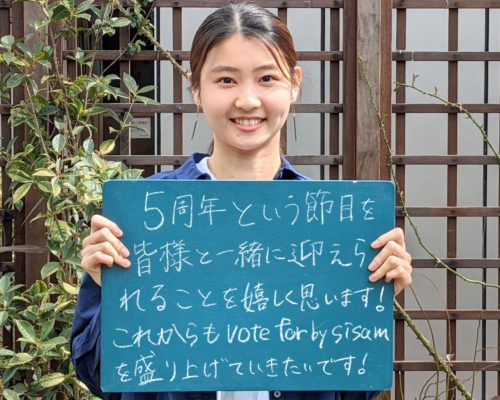 5周年という節目を
皆様と一緒に迎えら
れることを嬉しく思います!
これからもvote for by sisam
を盛り上げていきたいです!